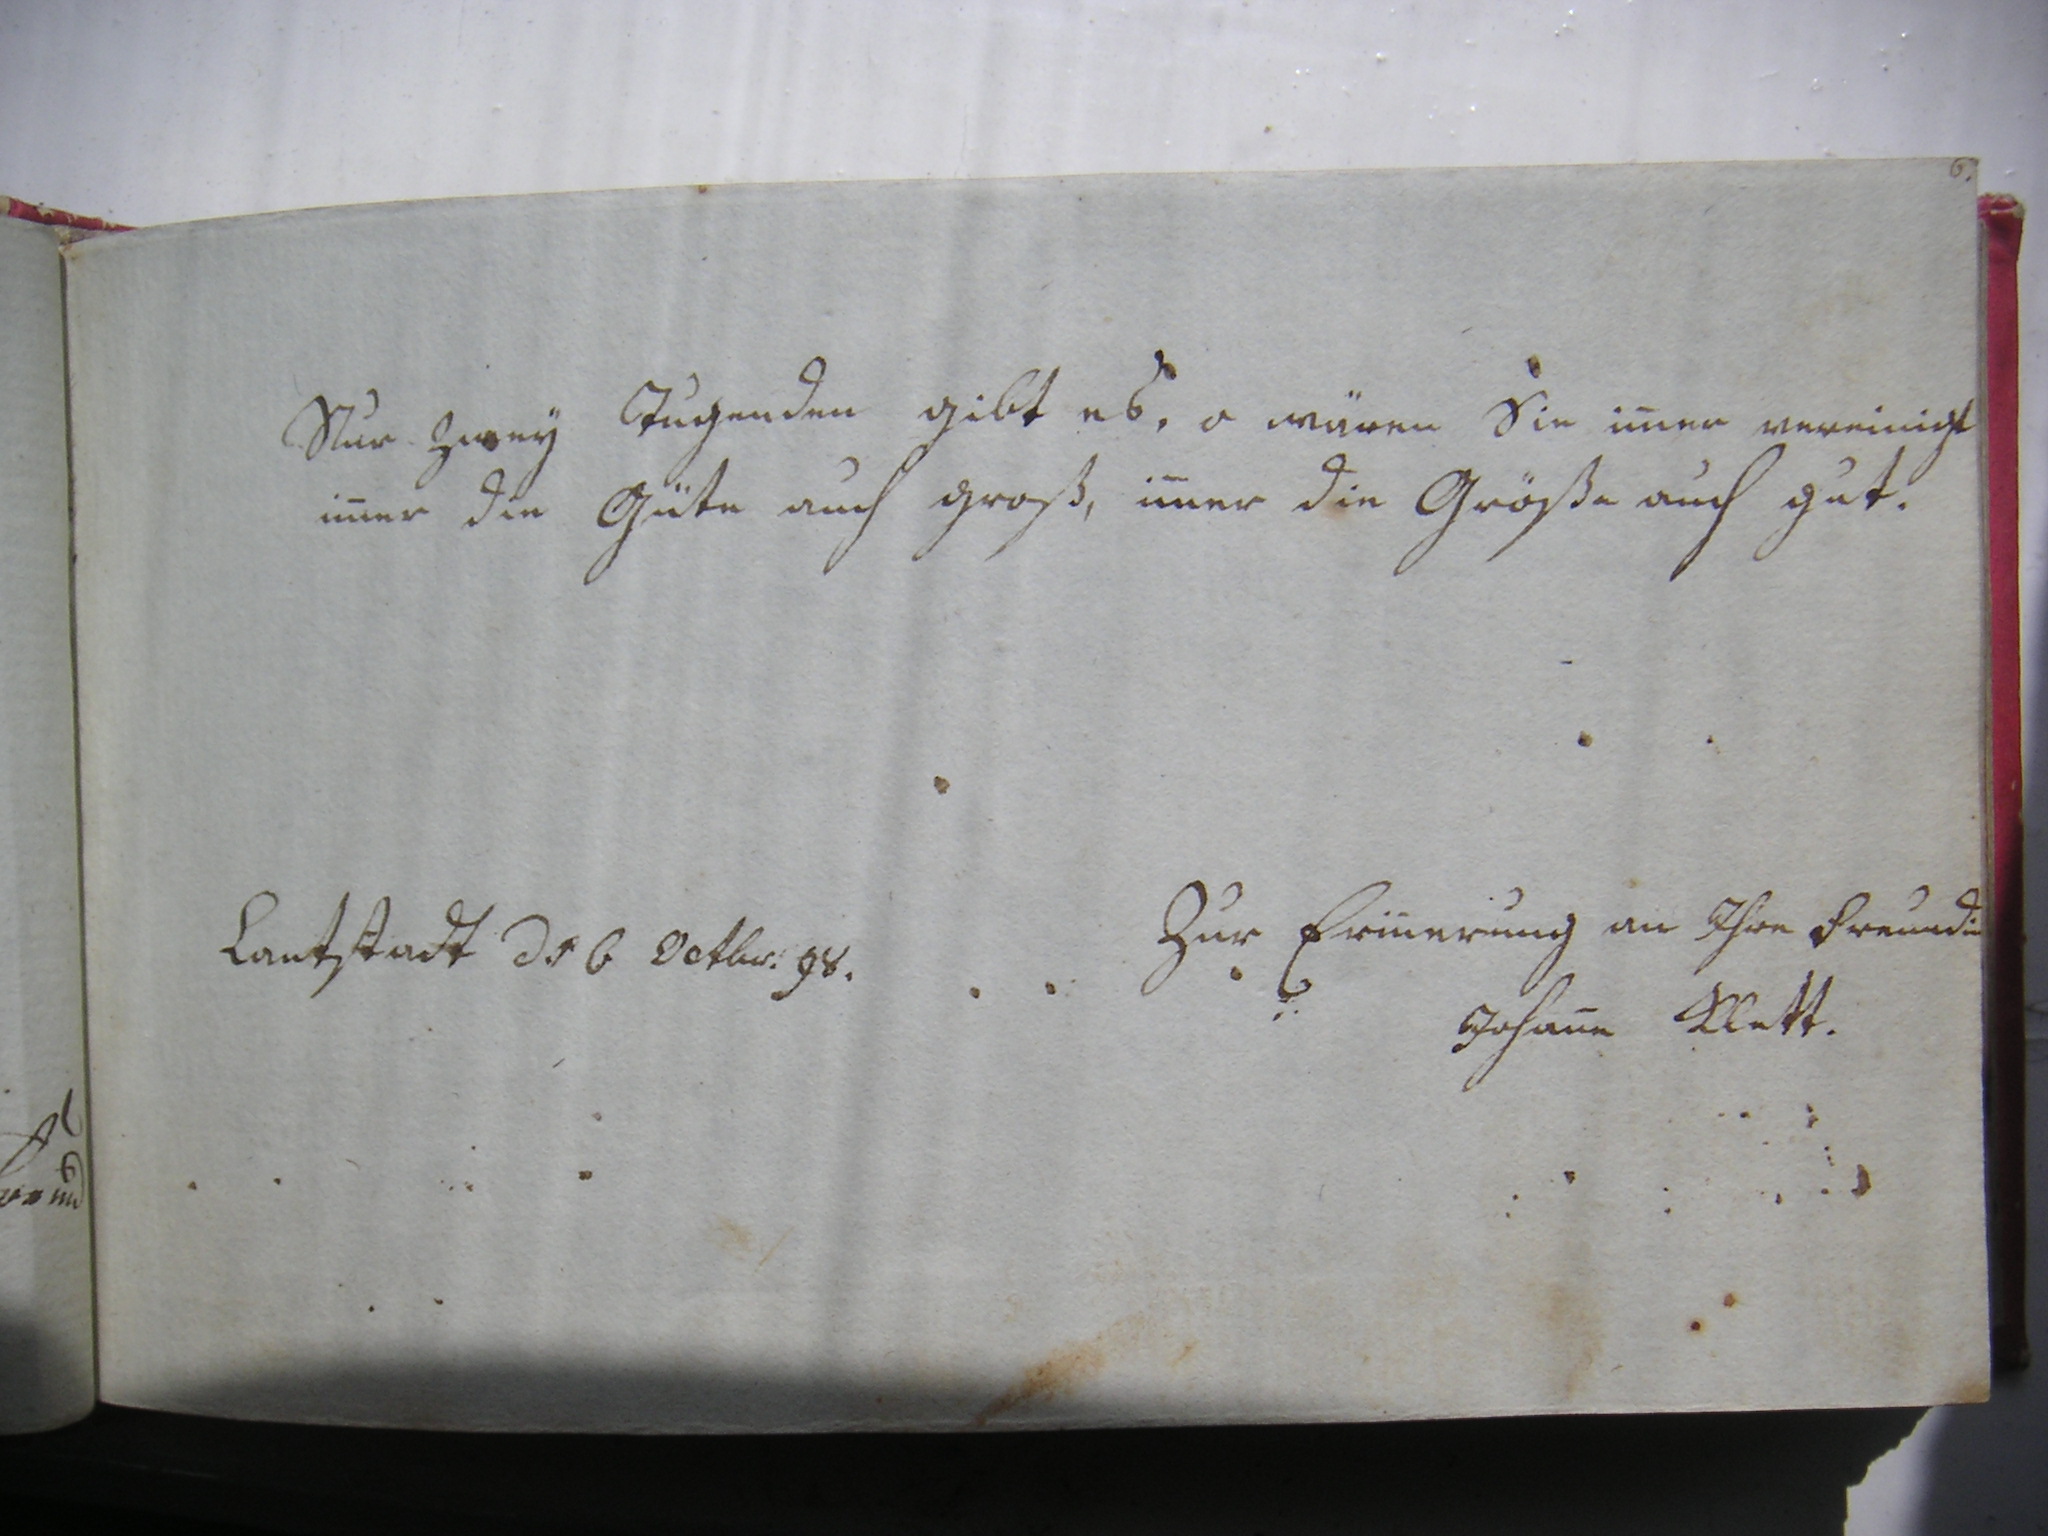 6.
Nur zweÿ Tugenden gibt es, o wären Sie im̄er vereinigt
im̄er die Güte auch groß, im̄er die Größe auch gut.
Lautstadt d. 6 Octbr. 98.
Zur Erin̄erung an Ihre Freundin
Johan̄e Klett.